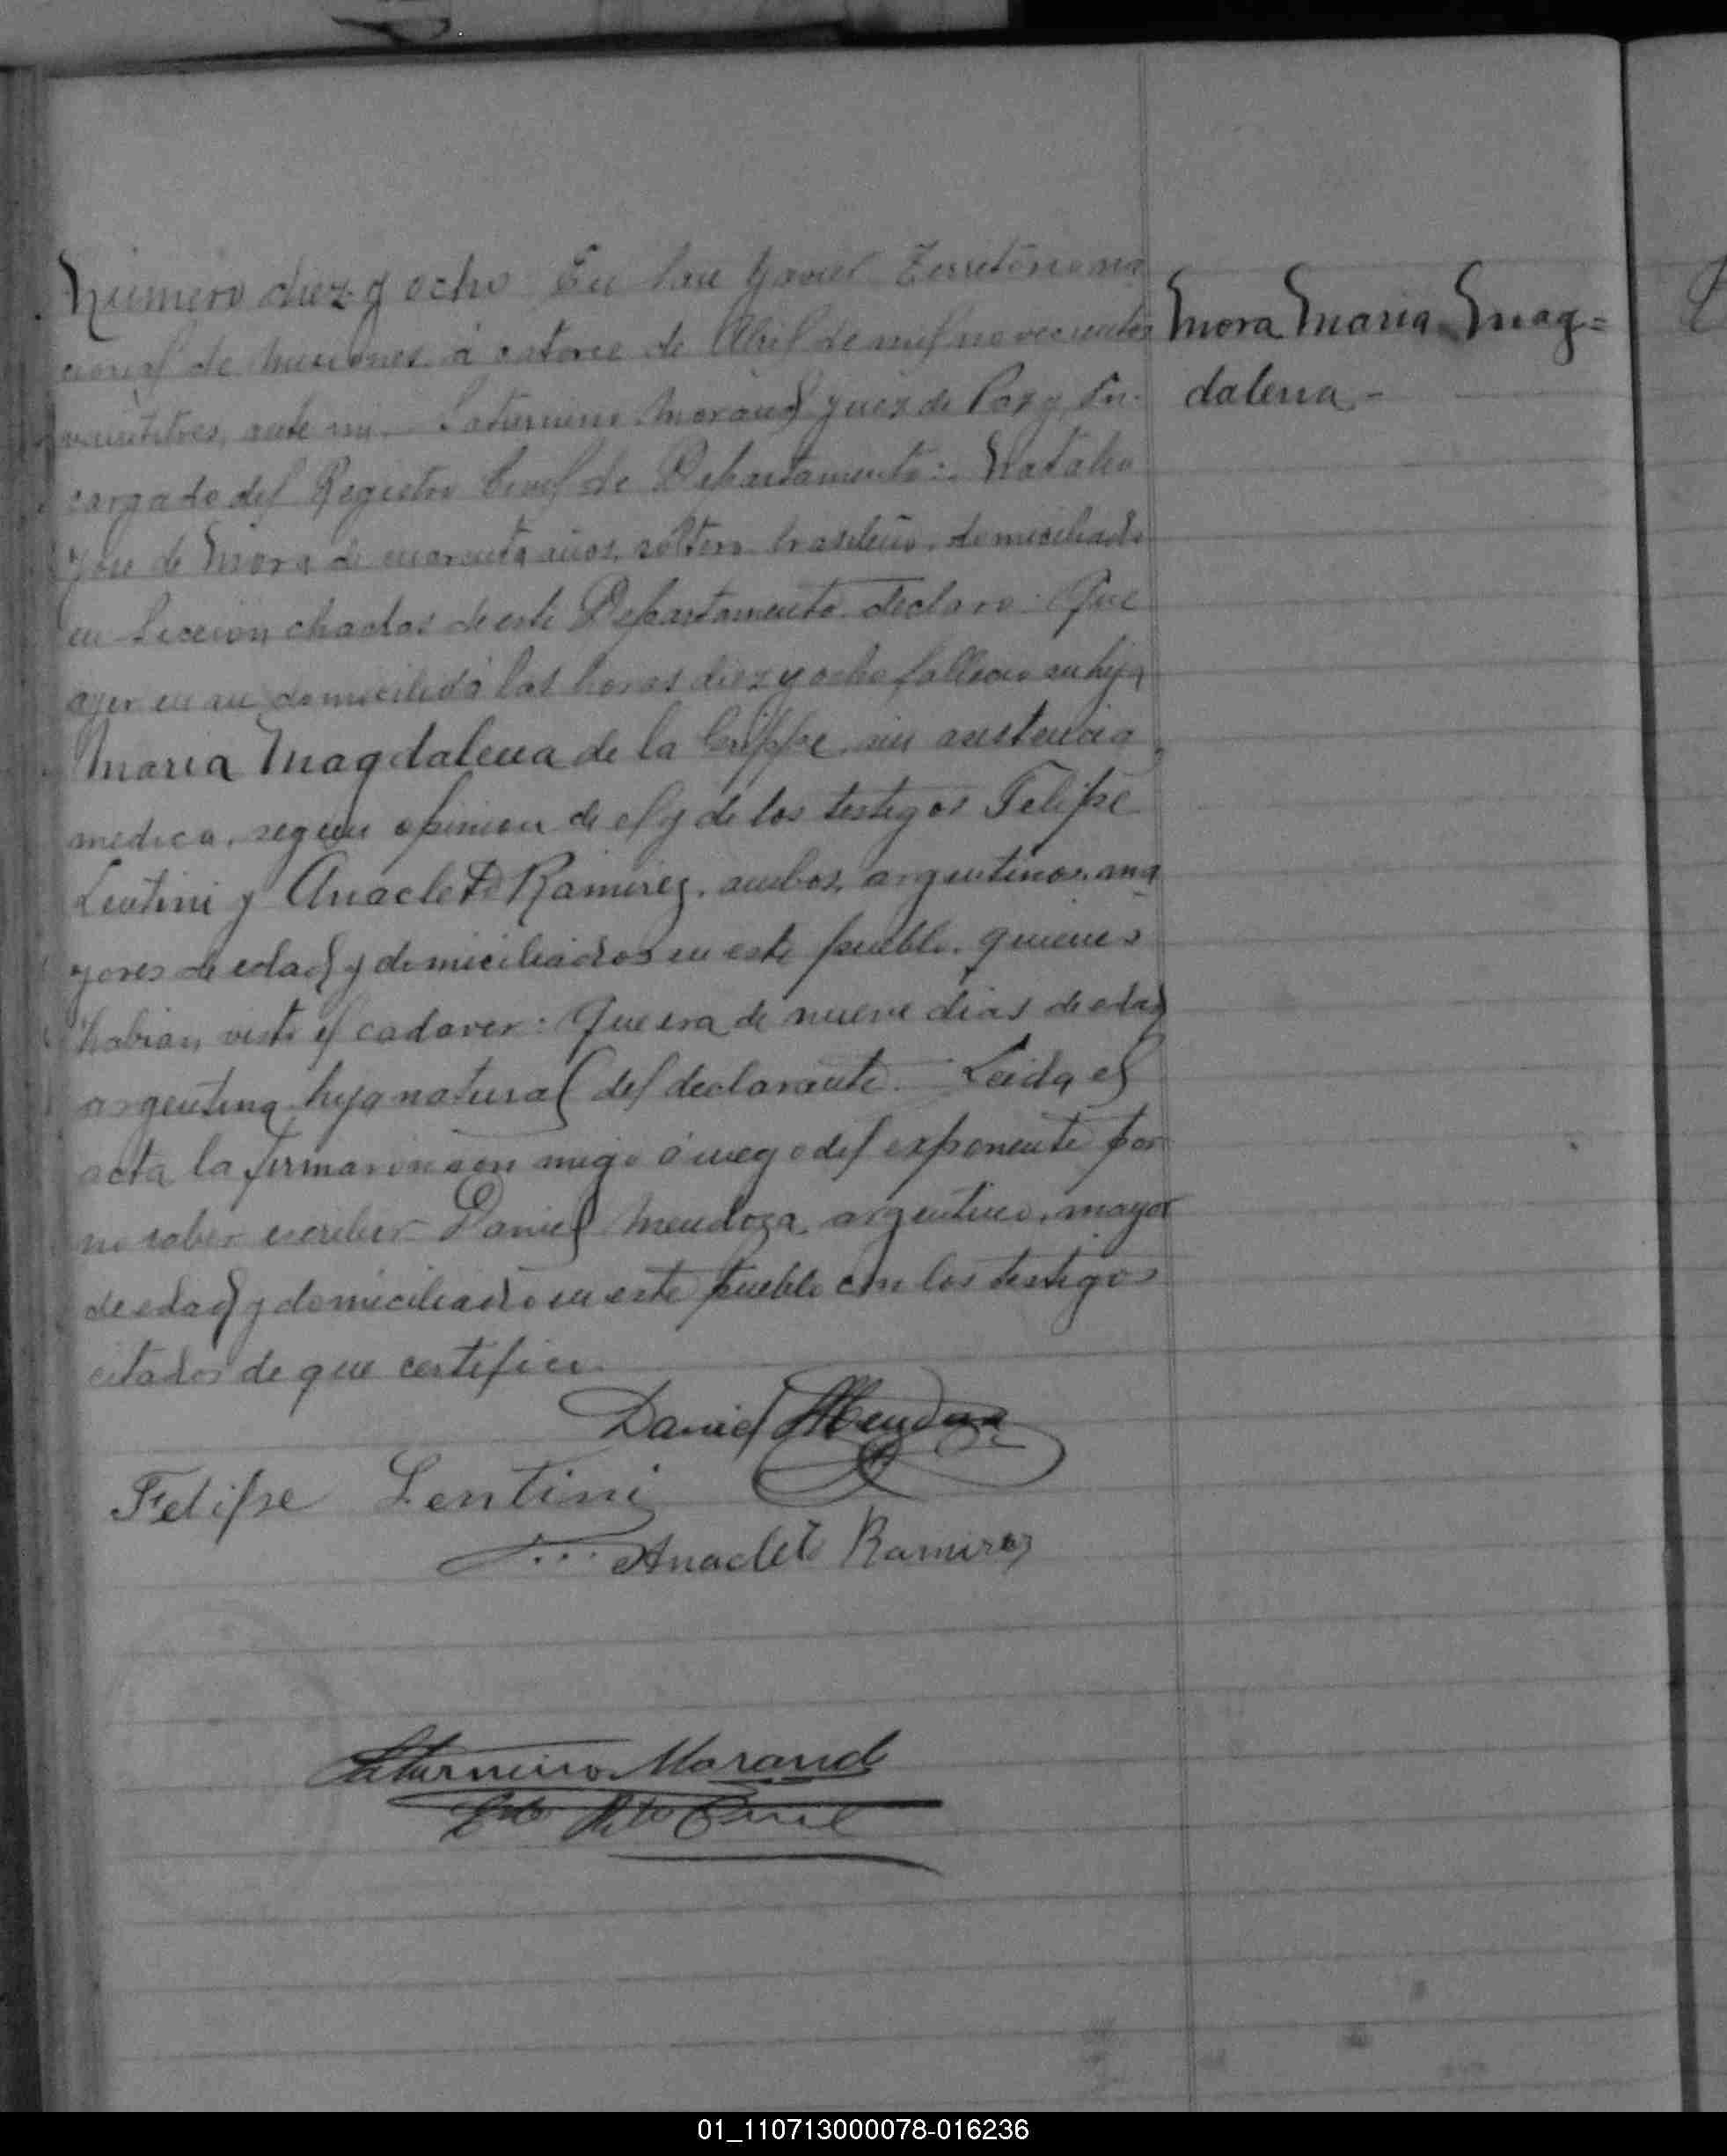 Número diez y ocho En San Javier Territorio na
cional de Misiones á catorce de Abril de mil novecientos
veintitres, ante mi Saturnino Morand Juez de Paz y En-
cargado del Registro Civil de Departamento: Natalio
José de Mora de cuarenta años, soltero brasileño, domiciliado
en Sección chacras de este Departamento declaro: Que
ayer en su domicilio á las horas diez y ocho fallecio su hija
Maria Magdalena de la Grippe sin asistencia
medica, según opinion de el y de los testigos Felipe
Lentini y Anacleto Ramirez, ambos, argentinos, ma
yores de edad y domiciliados en este pueblo, quienes
habian visto el cadaver: Que era de nueve dias de edad
argentina hija natural del declarante. Leida el
acta la firmaron con migo á ruego del exponente por
no saber escribir Daniel Mendoza argentino, mayor
de edad y domiciliado en este pueblo con los testigos
citados de que certifico
Mora Maria Mag=
dalena -
Daniel Mendoza
Felipe Lentini
Anacleto Ramirez
Saturnino Morand
Edo Rto Civil
01_110713000078-016236